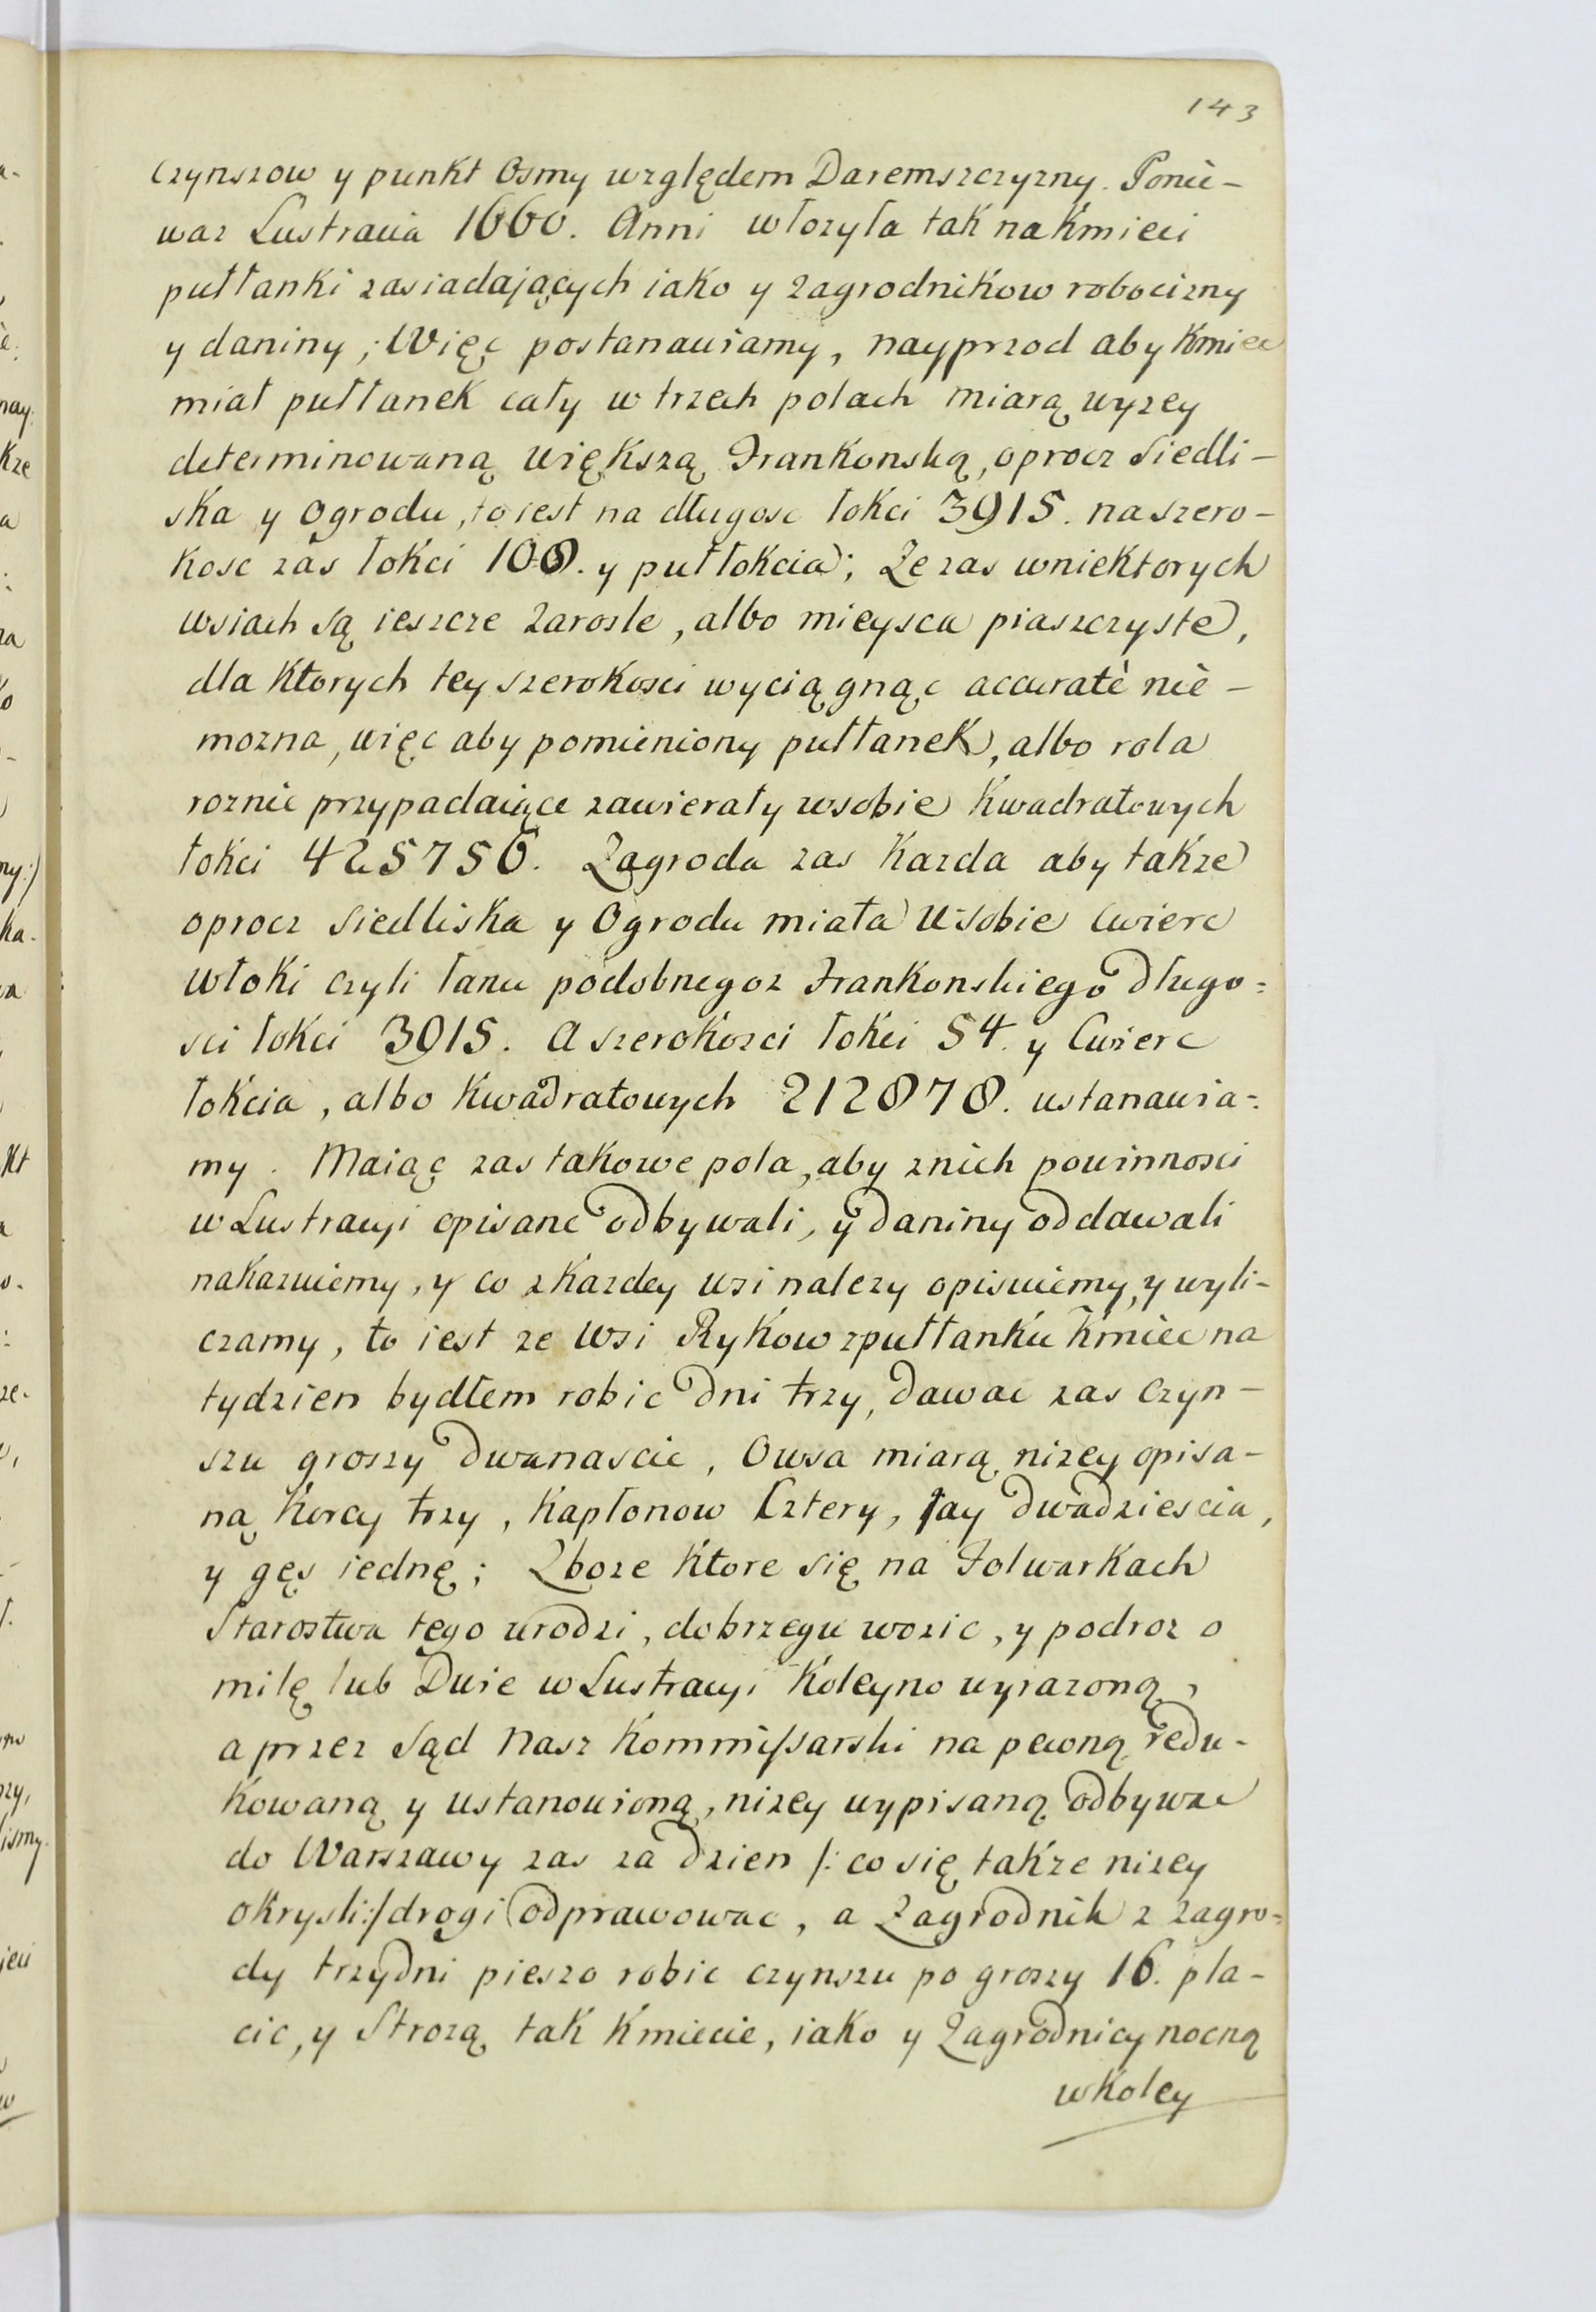 143
Czynszow y punkt Osmy względem Daremszczyzny. Poniè-
waz Lustracia 1660. Anni włozyła tak na Kmieci
pułłanki zasiadających iako y zagrodnikow robocizny
y daniny; Więc postanawiamy, nayprzod aby Kmiec
miał pułłanek cały w trzech polach miarą wyzey
determinowaną większą Frankonską, oprocz Siedli-
ska y Ogrodu, to iest na długosc łokci 3915. na szero-
kosc zas łokci 108. y puł łokcia; Ze zas w niektorych
wsiach są ieszcze Zarosle, albo mieysca piaszczyste,
dla Ktorych tey szerokosci wyciągnąc accuratè niè-
mozna, więc aby pomieniony pułłanek, albo rola
roznie przypadaiące zawierały w sobie Kwadratowych
łokci 425756. Zagroda zas Kazda aby takze
oprocz Siedliska y Ogrodu miała w sobie cwierc
włoki czyli łanu podobnegoz Frankonskiego długo=
sci łokci 3915. a szerokosci łokci 54. y Cwierc
łokcia, albo Kwadratowych 212878. ustanawia=
my. Maiąc zas takowe pola, aby z nich powinnosci
w Lustracyi opisane odbywali, y daniny oddawali
nakazuiemy, y co z Kazdey wsi nalezy opisuiemy, y wyli-
czamy, to iest ze wsi Rykow z pułłanku Kmiec na
tydzien bydłem robic dni trzy, dawac zas czyn-
szu groszy dwanascie, Owsa miarą nizey opisa-
ną Korcy trzy, Kapłonow Cztery, Jay dwadziescia,
y gęs iednę; Zboze Ktore się na Folwarkach
Starostwa tego urodzi, do brzegu wozic, y podroz o
milę lub Dwie w Lustracyi Koleyno wyrazoną,
a przez Sąd Nasz Kommissarski na pewną redu-
kowaną y ustanowioną, nizey wypisaną odbywac
do Warszawy zas za dzien /: co się takze nizey
okrysli:/ drogi odprawowac, a Zagrodnik z zagro=
dy trzy dni pieszo robic czynszu po groszy 16. pła-
cic, y Strozą tak Kmiecie, iako y Zagrodnicy nocną
w Koley